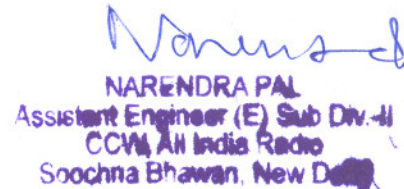 NARENDRA PAL
Assistant Engineer (E) Sub Div.-II
CCW, All India Radio
Soochna Bhawan, New Delhi